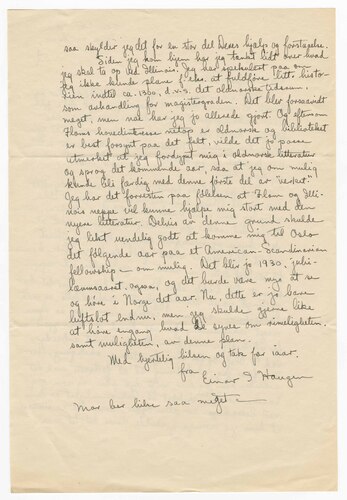 saa skylder jeg det for en stor del Deres hjelp og forstaaelse.
Siden jeg kom hjem har jeg tænkt litt over hvad
jeg skal ta op ved Illinois. Jeg har spekulert paa om
jeg ikke kunde plane f. eks. at fuldføre litt. histor-
ien indtil ca. 1300, d.v.s. det oldnorske tidsrum,
som avhandling for magistergraden. Det blir forsaavidt
meget, men noe har jo allerede gjort. Og eftersom
Floms hovedinteresse netop er oldnorsk og biblioteket
er best forsynt paa det felt, vilde det jo passe
utmerket at jeg fordypet mig i oldnorsk litteratur
og sprog det kommende aar, saa at jeg om mulig
kunde bli færdig med denne første del av "verket".
Jeg har det forresten paa følelsen at Flom og Illi-
nois neppe vil kunne hjelpe mig stort med den
nyere litteratur. Delvis av denne grund skulde
jeg likt uendelig godt at komme mig til Oslo
det følgende aar paa et American-Scandinavian
fellowship – om mulig. Det blir jo 1930, "jubi-
læumsaaret" ogsaa, og det burde være noe at se
og høre i Norge det aar. Nu, dette er jo bare
luftslot endnu, men jeg skulde gjerne like
at høre engang hvad De synes om rimeligheten,
samt muligheten, av denne plan.
Med hjertelig hilsen og tak for iaar.
fra
Einar I Haugen
Mor ber hilse saa meget –